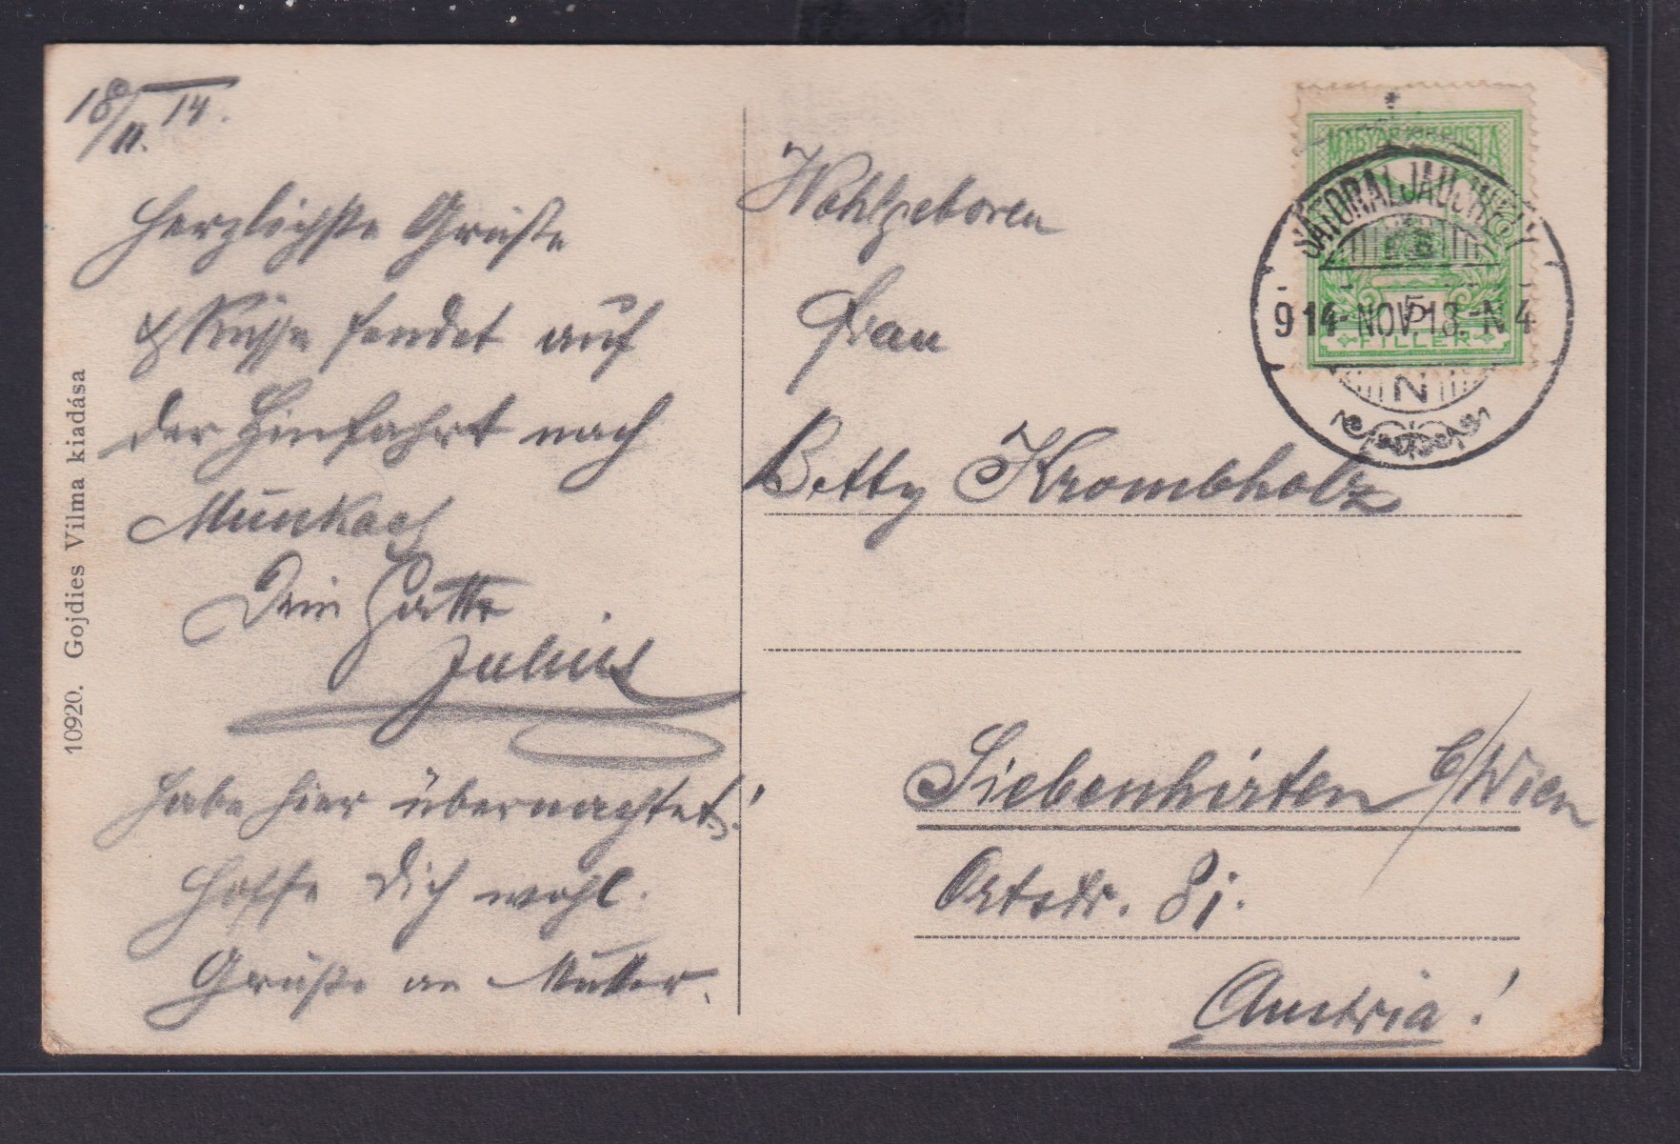 18/II. 14.
Herzlichste Grüße
& Küsse sendet auf
der Hinfahrt nach
Munkacs
Dein Gatte
Julius
habe hier übernachtet!
Hoffe Dich wohl.
Grüße an Mutter.
10920. Gojdies Vilma kiadása
Wohlgeboren
Frau
Betty Krombholz
Siebenhirten b/Wien
Ortsstr. 81.
Austria!
MAGYAR KIR. POSTA
5
FILLÉR
SÁTORALJAÚJHELY
914 NOV 18 N 4
N